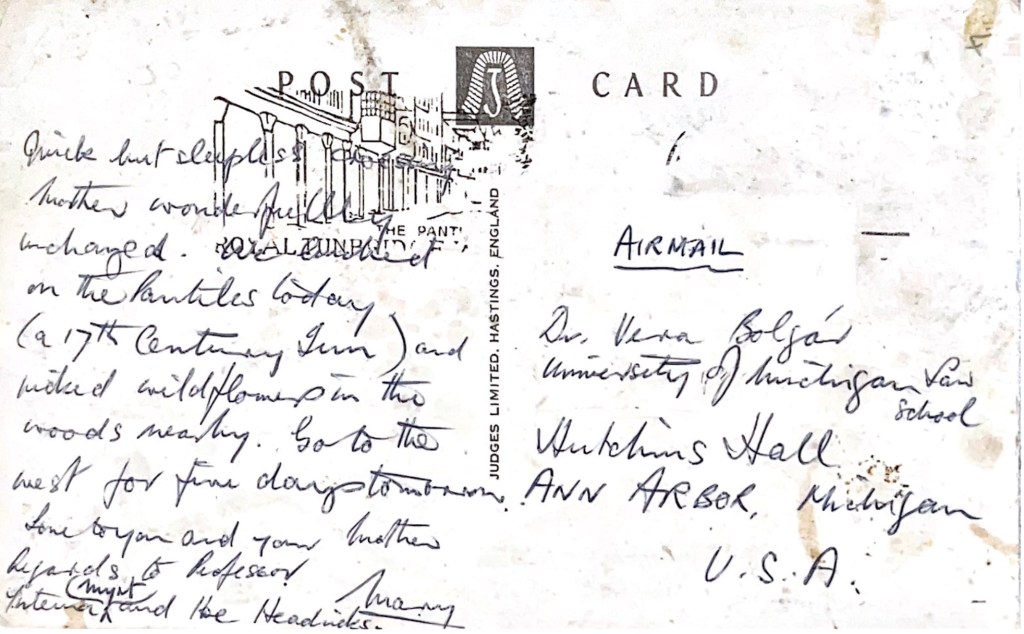 POST CARD
J
Quick but sleepless crossing
Mother wonderfully
unchanged. We walked
THE PANTI
ROYAL TUNB
on the Pantiles today
(a 17th Century Inn) and
picked wildflowers in the
woods nearby. Go to the
west for five days tomorrow.
Love to you and your Mother
Regards to Professor
Myrt
and the Headricks.
Mary
JUDGES LIMITED, HASTINGS, ENGLAND
AIRMAIL
Dr. Vera Bolgár
University of Michigan Law
School
Hutchins Hall
ANN ARBOR, Michigan
U.S.A.